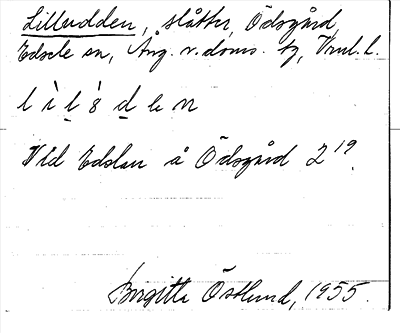 Lilludden, slåtter, Ödsgård
Edsele sn, Ång. v. doms. tg, Vnrl. l.
l ì l s̀ d e n
Vid Edslan å Ödsgård 2¹⁹.
Birgitta Östlund, 1955.